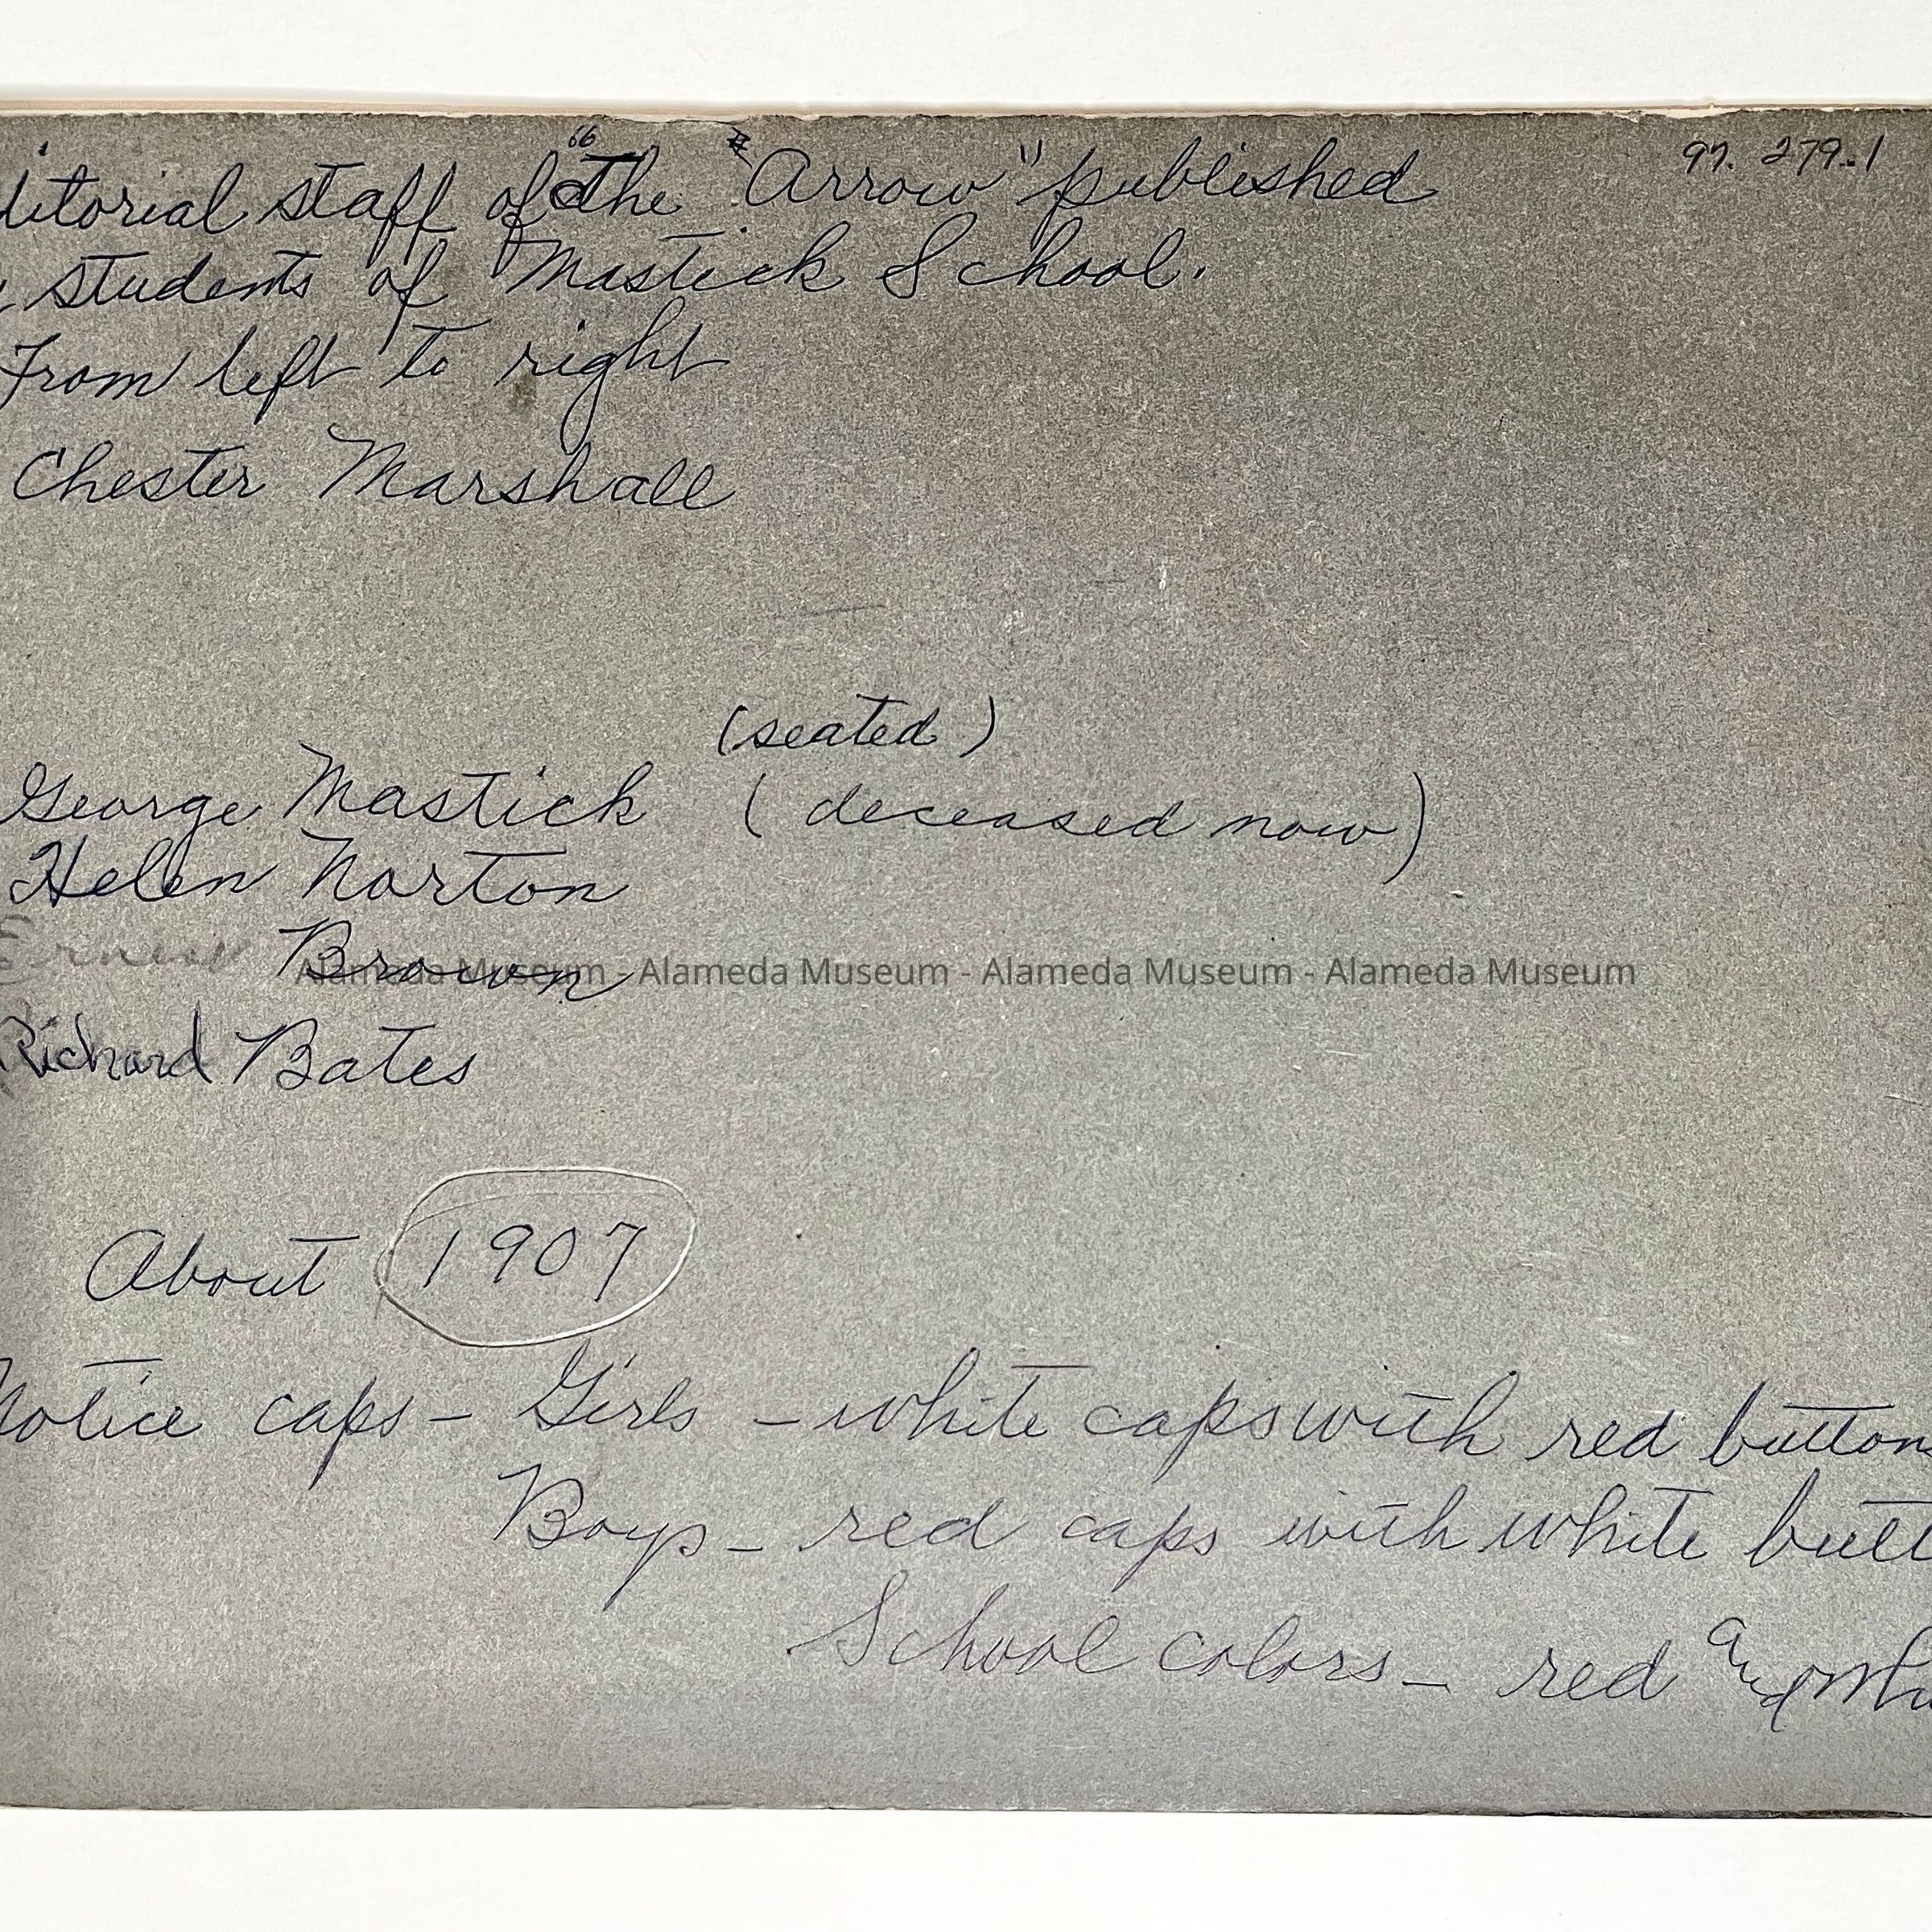 ditorial staff of "The "Arrow" published
97. 279.1
students of Mastick School.
From left to right
Chester Marshall
(seated)
George Mastick (deceased now)
Helen Norton
Ernest Brown
Alameda Museum - Alameda Museum - Alameda Museum - Alameda Museum
Richard Bates
About 1907
Notice caps - Girls - white caps with red button
Boys - red caps with white butt
School colors - red and whi